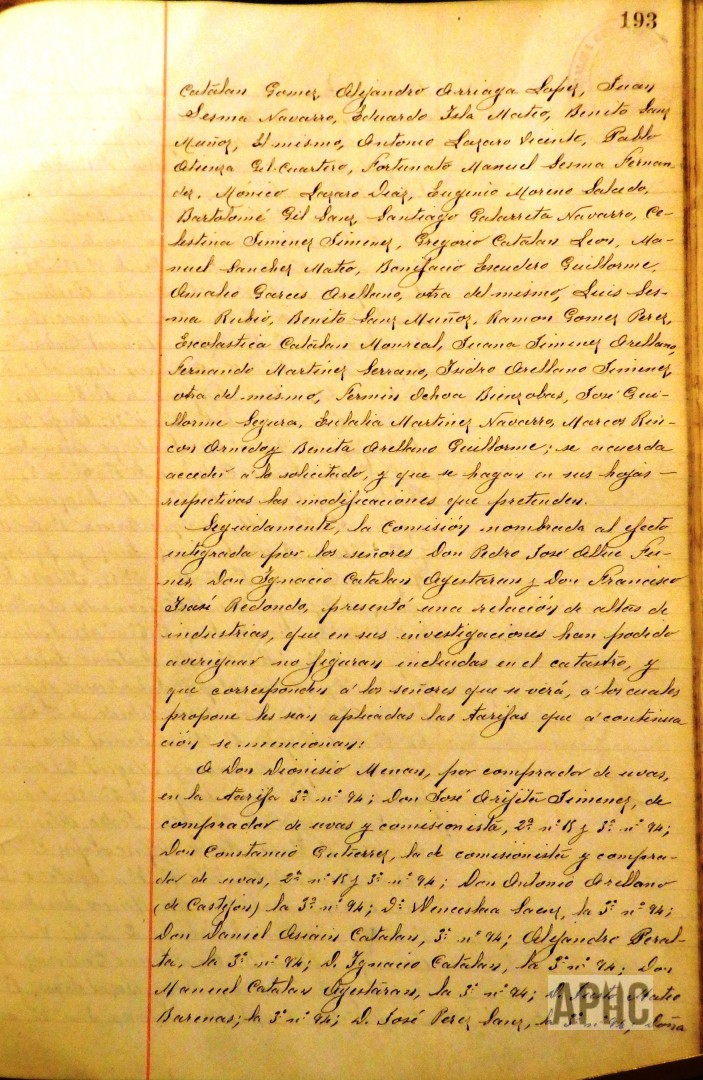 193
Catalan Gomez, Alejandro Arriaga Lopez, Juan
Sesma Navarro, Eduardo Isla Mateo, Benito Sanz
Muñoz, El mismo, Antonio Lazaro Vicente, Pablo
Atienza Gil-Cuartero, Fortunato Manuel Sesma Fernan-
dez, Mónico Lazaro Diaz, Eugenio Moreno Salcedo,
Bartolomé Gil Sanz, Santiago Galarreta Navarro, Ce-
lestina Jimenez Jimenez, Gregorio Catalan Leon, Ma-
nuel Sanchez Mateo, Bonifacio Escudero Guillorme,
Amalio Garces Arellano, otra del mismo, Luis Ses-
ma Rubio, Benito Sanz Muñoz, Ramon Gomez Perez,
Escolastica Catalan Monreal, Juana Jimenez Arellano,
Fernando Martinez Serrano, Isidro Arellano Jimenez
otra del mismo, Fermin Ochoa Bienzobas, José Gui-
llorme Segura, Eulalia Martinez Navarro, Marcos Rin-
con Arnedo y Benita Arellano Guillorme; se acuerda
acceder á lo solicitado, y que se hagan en sus hojas
respectivas las modificaciones que pretenden.
Seguidamente, la Comisión nombrada al efecto
integrada por los señores Don Pedro José
Don Ignacio Catalan Ayestaran y Don Francisco
Isasi Redondo, presentó una relación de altas de
industrias, que en sus investigaciones han podido
averiguar no figuran incluidas en el catastro, y
que corresponden á los señores que se verá, á los cuales
propone les sean aplicadas las tarifas que á continua
ción se mencionan:
A Don Dionisio Menan, por comprador de uvas,
en la tarifa 3ª nº 94; Don José Arifita Jimenez, de
comprador de uvas y comisionista, 2ª nº 15 y 3ª nº 94;
Don Constancio Gutierrez, la de comisionista y compra-
dor de uvas, 2ª nº 15 y 3ª nº 94; Don Antonio Arellano
(de Castejón) la 3ª nº 94; Dª Wenceslaa Saenz, la 3ª nº 94;
Don Daniel Asiain Catalan, 3ª nº 94; Alejandro Peral-
ta, la 3ª nº 94; D. Ignacio Catalan, la 3ª nº 94; Don
Manuel Catalan Ayestaran, la 3ª nº 94; Mateo
Barenas; la 3ª nº 94; D. José Perez Sanz, la 3ª nº 94, Doña
APHC